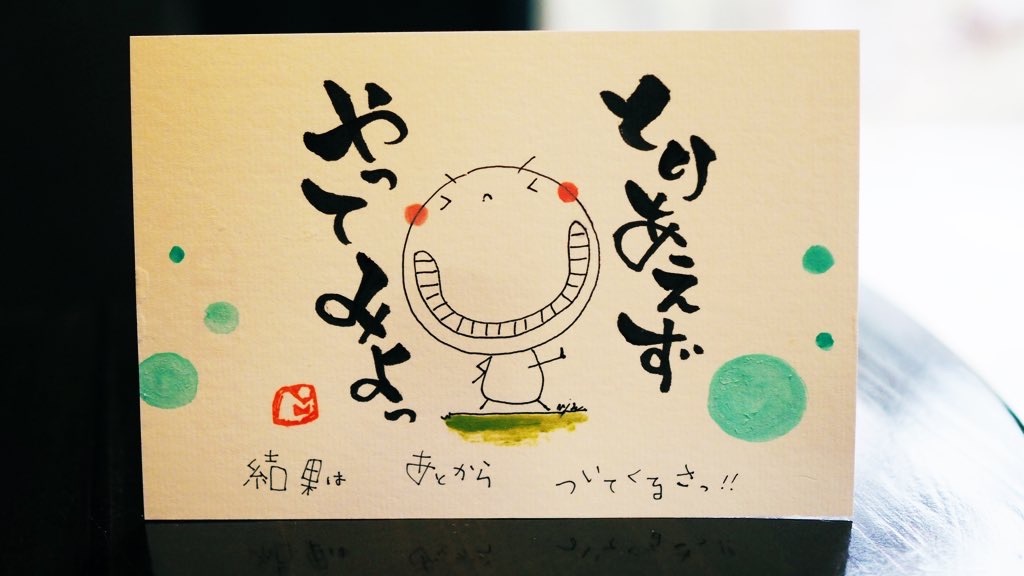 とりあえず
やってみよっ
結果は あとから ついてくるさっ!!